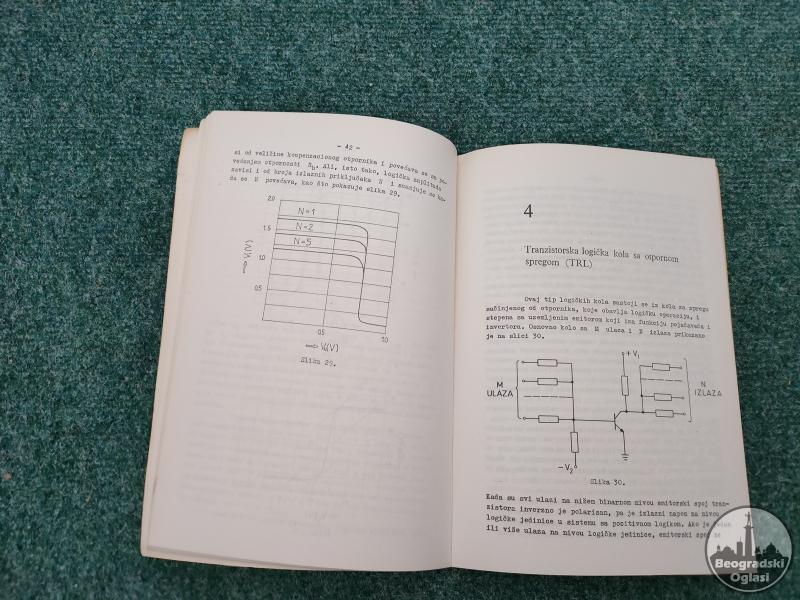 - 42 -
si od veličine kompenzacionog otpornika i povećava se sa po-
većanjem otpornosti Rb. Ali, isto tako, logička amplituda
zavisi i od broja izlaznih priključaka N i smanjuje se ka-
da se N povećava, kao što pokazuje slika 29.
2.0
N=1
1.5
N=2
N=5
1.0
0.5
0.5
1.0
Slika 29.
4
Tranzistorska logička kola sa otpornom
spregom (TRL)
Ovaj tip logičkih kola sastoji se iz kola za spregu
sačinjenog od otpornika, koje obavlja logičku operaciju, i
stepena sa uzemljenim emitorom koji ima funkciju pojačavača i
invertora. Osnovno kolo sa M ulaza i N izlaza prikazano
je na slici 30.
+V1
M
ULAZA
N
IZLAZA
-V2
Slika 30.
Kada su svi ulazi na nižem binarnom nivou emitorski spoj tran-
zistora inverzno je polarisan, pa je izlazni napon na nivou
logičke jedinice u sistemu sa pozitivnom logikom. Ako je jedan
ili više ulaza na nivou logičke jedinice, emitorski spoj se
Beogradski
Oglasi